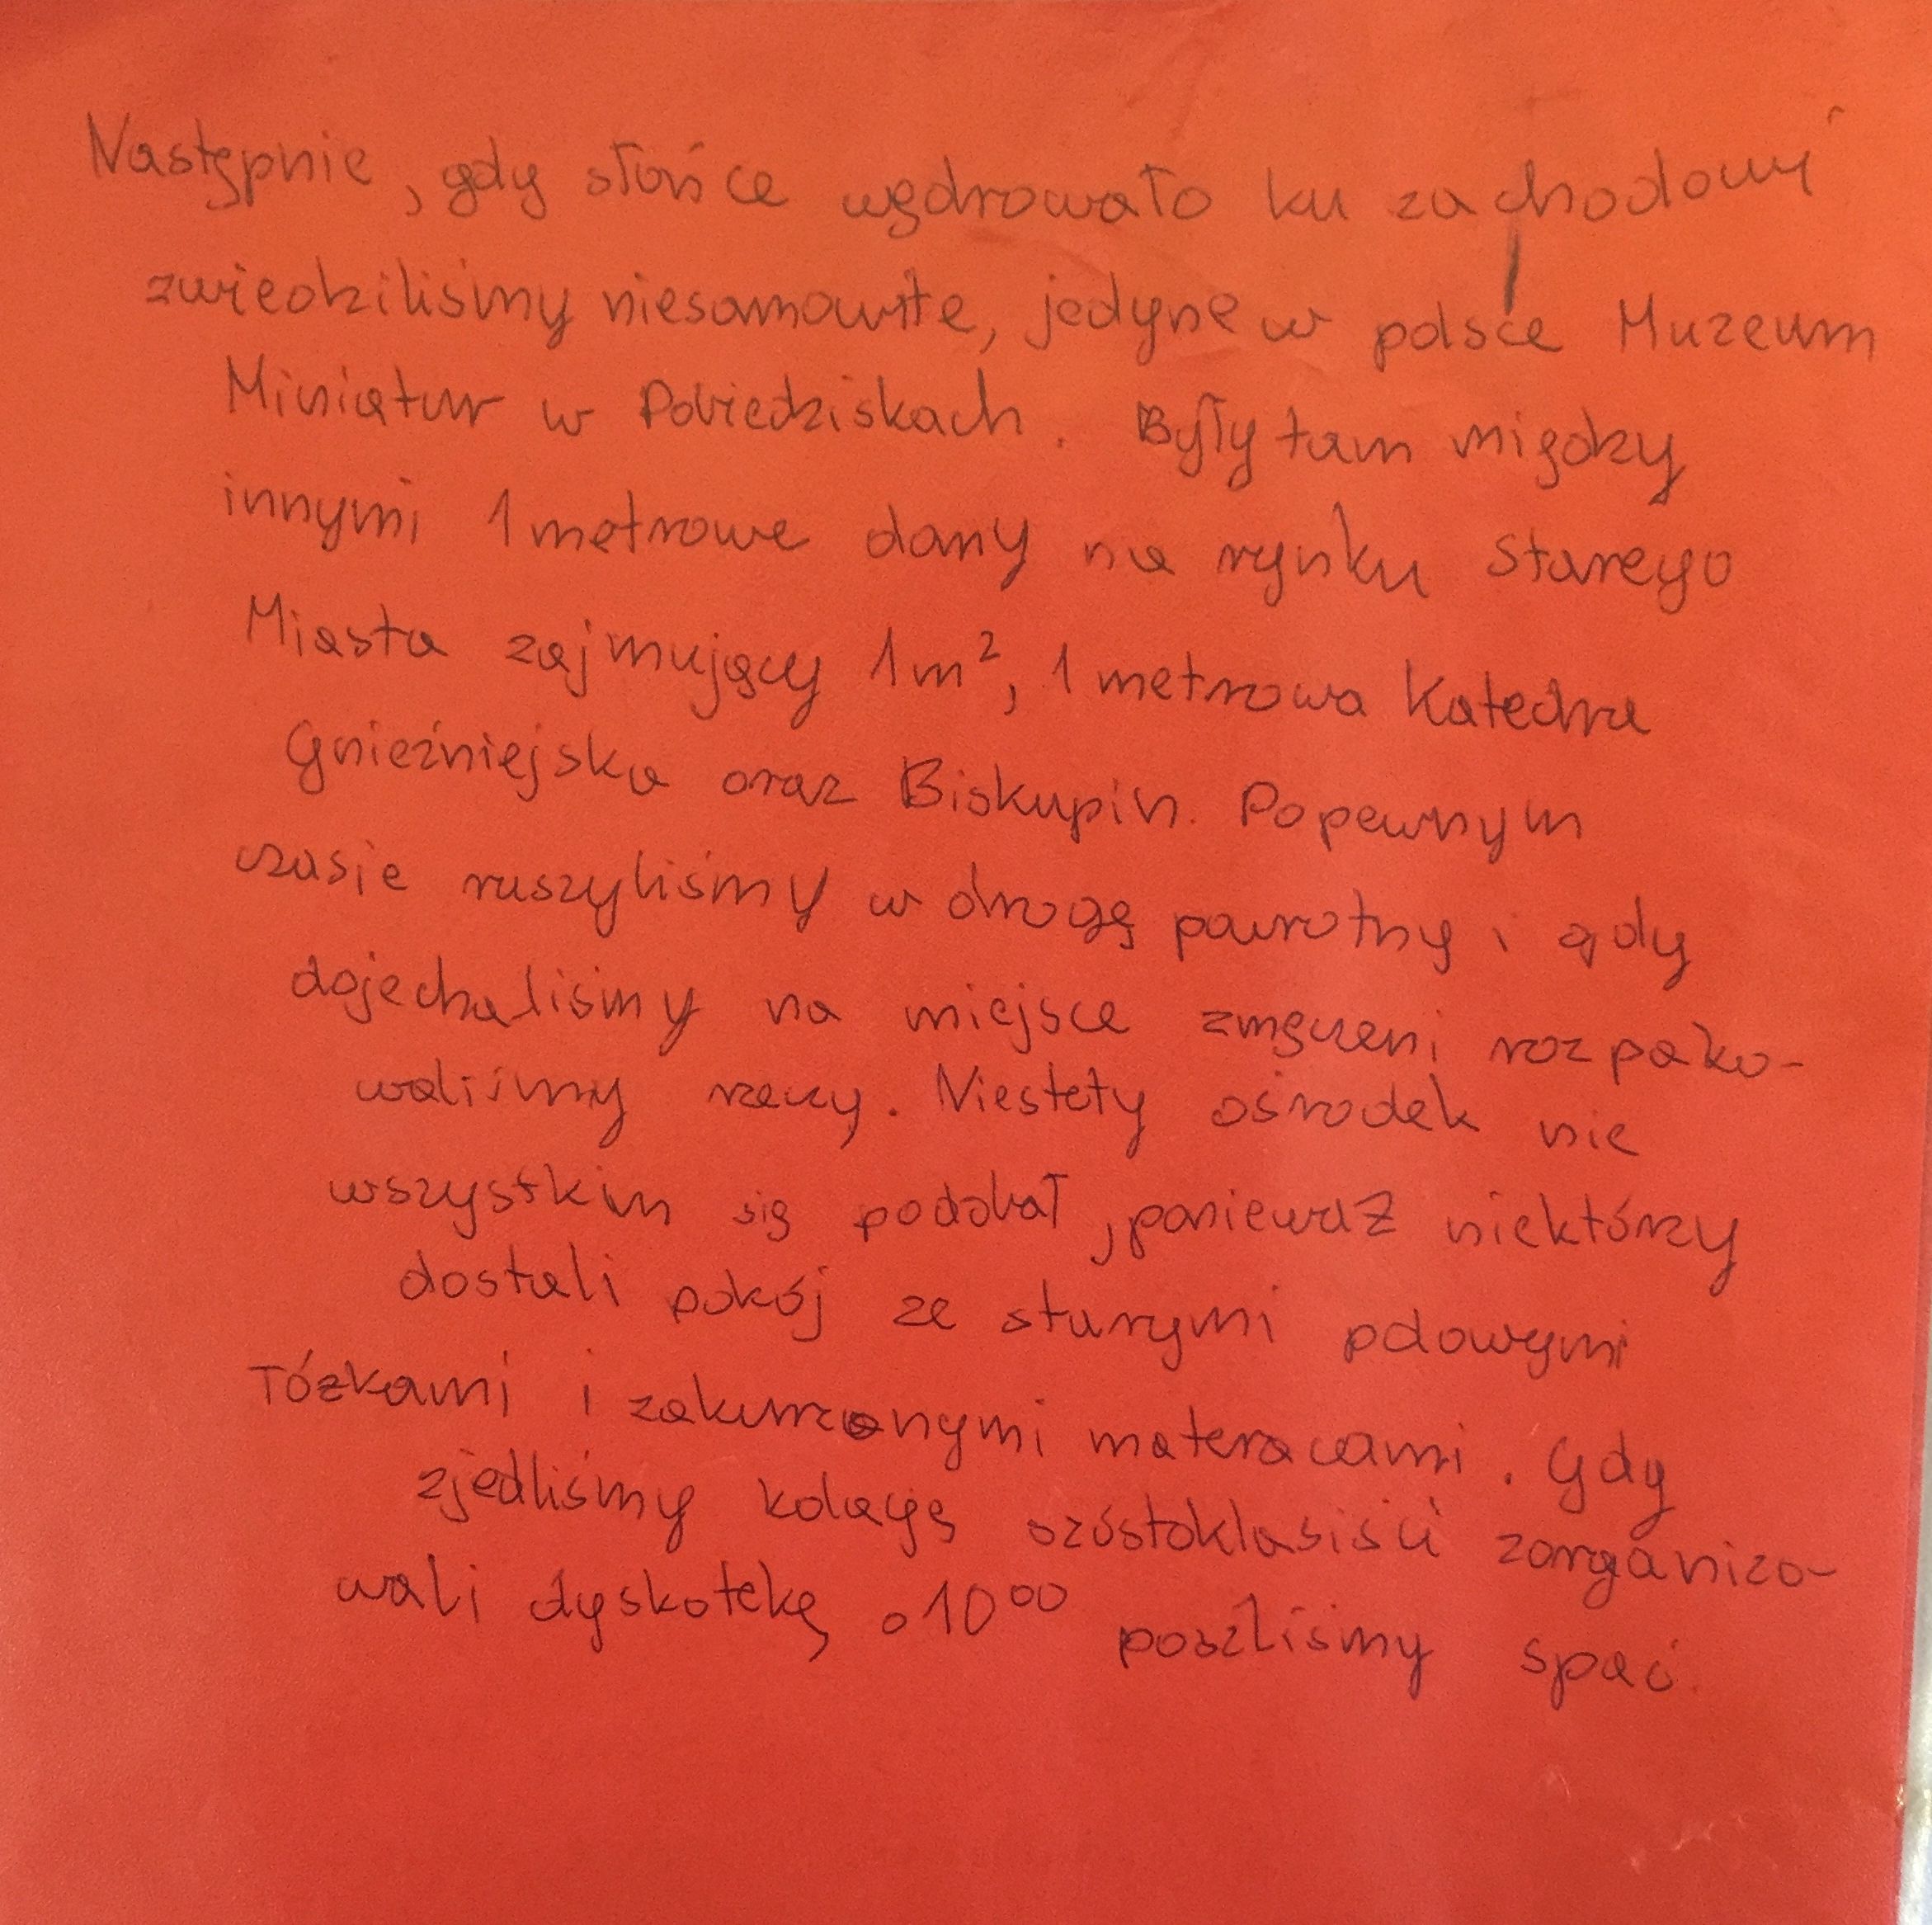 Następnie, gdy słońce wędrowało ku zachodowi
zwiedziliśmy niesamowite, jedyne w polsce Muzeum
Miniatur w Pobiedziskach. Były tam między
innymi 1 metrowe domy na rynku Starego
Miasta zajmujący 1m², 1 metrowa Katedra
Gnieźniejska oraz Biskupin. Po pewnym
czasie ruszyliśmy w drogę powrotny i gdy
dojechaliśmy na miejsce zmęczeni rozpako-
waliśmy rzeczy. Niestety ośrodek nie
wszystkim się podobał, ponieważ niektórzy
dostali pokój ze starymi polowymi
łóżkami i zakurzonymi materacami. Gdy
zjedliśmy kolację szóstoklasiści zorganizo-
wali dyskotekę o 10⁰⁰ poszliśmy spać.